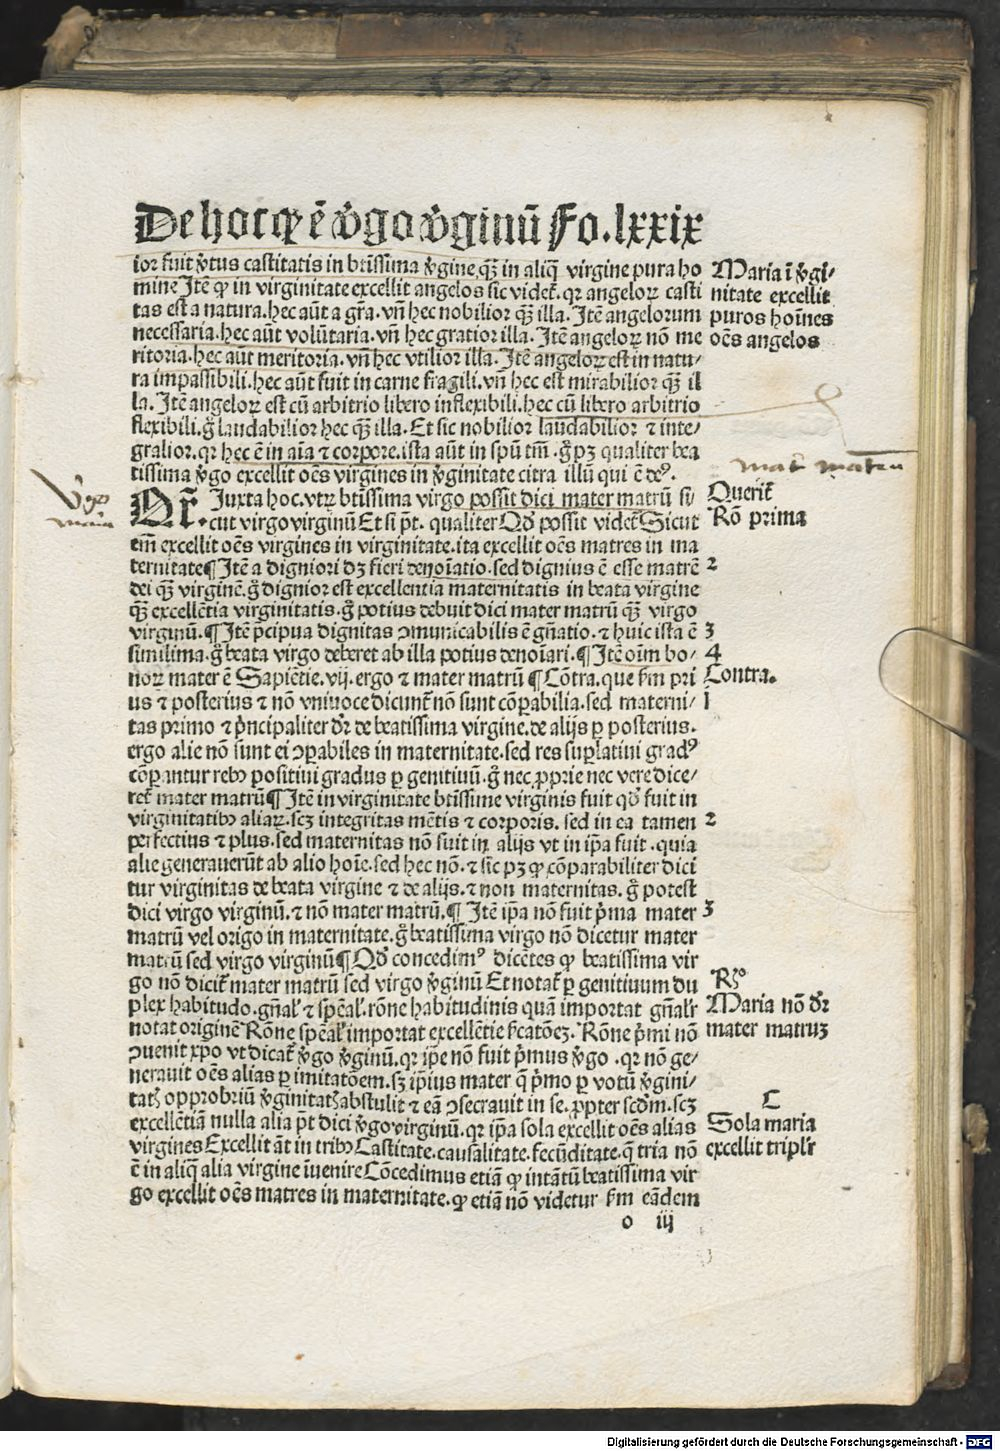 De hoc qꝙ ē v̾go v̾ginū Fo. lxxix
ior fuit v̾tus castitatis in btīssima v̾gine, qȝ̄ in aliq̄ virgine pura ho
mine Itē ꝙ in virginitate excellit angelos sic videt᷑. qꝛ angeloꝝ casti
tas est a natura. hec aūt a gr̄a. vn̄ hec nobilior qȝ̄ illa. Itē angelorum
necessaria. hec aūt volūtaria. vn̄ hec gratior illa. Itē angeloꝝ nō me
ritoria. hec aūt meritoria. vn̄ hec vtilior illa. Itē angeloꝝ est in natu-
ra impassibili. hec aūt fuit in carne fragili. vn̄ hec est mirabilior qȝ̄ il
la. Itē angeloꝝ est cū arbitrio libero inflexibili. hec cū libero arbitrio
flexibili. g̊ laudabilior hec qȝ̄ illa. Et sic nobilior laudabilior ⁊ inte-
gralior. qꝛ hec ē in aīa ⁊ corpore. ista aūt in spū tm̄. g̊ pȝ qualiter bea
tissima v̾go excellit oēs virgines in v̾ginitate citra illū qui ē deꝰ.
Maria ī v̾gi-
nitate excellit
puros hoīnes
oēs angelos
mat᷑ matrū
Querit᷑
Rō prima
QR̄. Juxta hoc. vtꝝ btīssima virgo possit dici mater matrū si-
cut virgo virginū Et si pt̄. qualiter Qđ possit videt᷑ Sicut
em̄ excellit oēs virgines in virginitate. ita excellit oēs matres in ma
ternitate ¶ Itē a digniori dȝ fieri denoīatio. sed dignius ē esse matrē
dei qȝ̄ virginē. g̊ dignior est excellentia maternitatis in beata virgine
qȝ̄ excellētia virginitatis. g̊ potius debuit dici mater matrū qȝ̄ virgo
virginū. ¶ Itē p̄cipua dignitas ꝯmunicabilis ē gn̄atio. ⁊ huic ista ē
similima. g̊ beata virgo deberet ab illa potius denoīari. ¶ Itē oīm bo-
noꝝ mater ē Sapiētie. vij. ergo ⁊ mater matrū ¶ Cōtra. que km̄ pri
us ⁊ posterius ⁊ nō vniuoce dicunt᷑ nō sunt cōꝑabilia. sed materni-
tas primo ⁊ pͥncipaliter dr̄ de beatissima virgine. de alijs ꝑ posterius.
ergo alie nō sunt ei ꝯꝑabiles in maternitate. sed res suꝑlatiui gradꝰ
cōꝑantur rebꝰ positiui gradus ꝑ genitiuū. g̊ nec ꝓprie nec vere dice-
ret᷑ mater matrū ¶ Itē in virginitate btīssime virginis fuit qđ fuit in
virginitatibꝰ aliaꝝ. scȝ integritas mētis ⁊ corporis. sed in ea tamen
perfectius ⁊ plus. sed maternitas nō fuit in alijs vt in ip̄a fuit. quia
alie generauerūt ab alio hoīe. sed hec nō. ⁊ sic pȝ ꝙ cōparabiliter dici
tur virginitas de beata virgine ⁊ de alijs. ⁊ non maternitas. g̊ potest
dici virgo virginū. ⁊ nō mater matrū. ¶ Itē ip̄a nō fuit pͥma mater
matrū vel origo in maternitate. g̊ beatissima virgo nō dicetur mater
matrū sed virgo virginū ¶ Qđ concedimꝰ dicētes ꝙ beatissima vir
go nō dicit᷑ mater matrū sed virgo v̾ginū Et notat᷑ ꝑ genitiuum du
plex habitudo. gn̄alꝭ ⁊ spēalꝭ. rōne habitudinis quā importat gn̄alꝭr
notat originē Rōne spēalꝭ importat excellētie sͥcatōeȝ. Rōne pͥmi nō
ꝯuenit xp̄o vt dicat᷑ v̾go v̾ginū. qꝛ ip̄e nō fuit pͥmus v̾go. qꝛ nō ge-
nerauit oēs alias ꝑ imitatōem. sȝ ip̄ius mater q̄ pͥmo ꝑ votū v̾gini-
tatꝭ opprobriū v̾ginitatꝭ abstulit ⁊ eā ꝯsecrauit in se. ꝓpter scđm. scȝ
excellētiā nulla alia pt̄ dici v̾go virginū. qꝛ ip̄a sola excellit oēs alias
virgines Excellit āt in tribꝰ Castitate. causalitate. fecūditate. q̄ tria nō
ē in aliq̄ alia virgine īuenire Cōcedimus etiā ꝙ intātū beatissima vir
go excellit oēs matres in maternitate. ꝙ etiā nō videtur km̄ eādem
2
3
4
Contra.
1
2
3
Rͦ
Maria nō dr̄
mater matruȝ
C
Sola maria
excellit triplꝭr
o iij
Digitalisierung gefördert durch die Deutsche Forschungsgemeinschaft - DFG